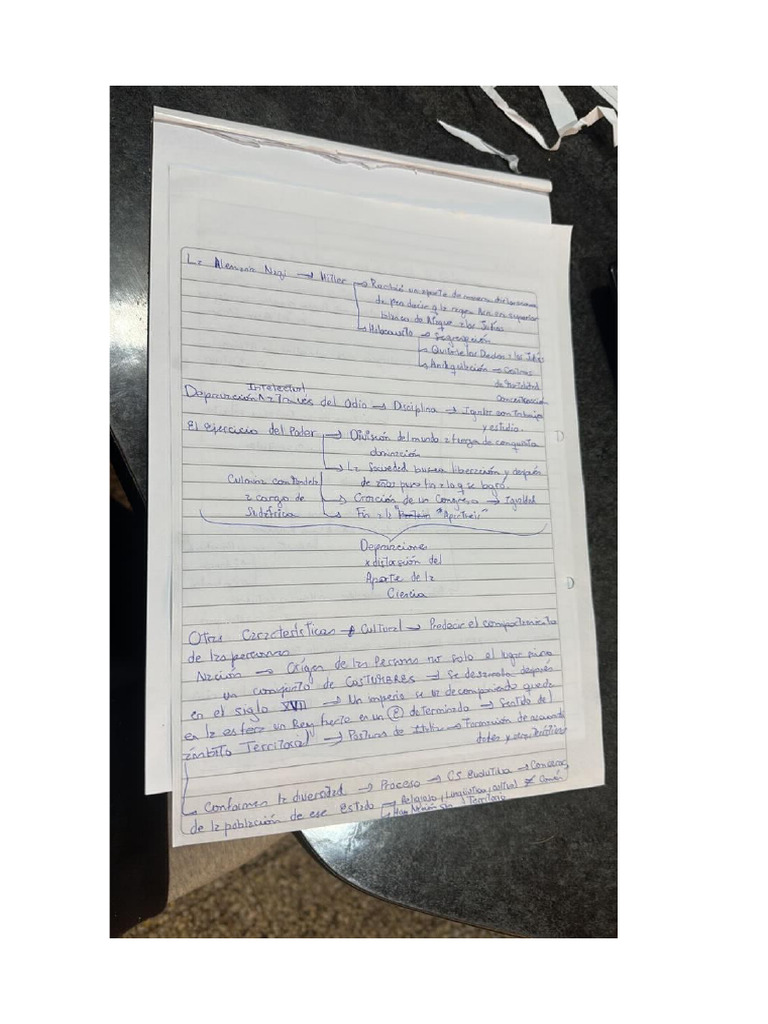 La Alemania Nazi → Hitler → Recibió un aporte de manera
de predecir q la raza Aria era superior
blanca de Negro a los Judíos
→ Holocausto → Segregación
→ Quitarse los Derechos a los Judíos
→ Aniquilación → Centros
de
concentración
Intelectual
Depuración A Través del Odio → Disciplina → Igualar con trabajo
y estudio.
El ejercicio del Poder → División del mundo a fuerza de conquista
dominación
→ La Sociedad busca liberación y después
de años puso fin a la q se logró.
Culmina con Mandela
a cargo de
Sudáfrica
→ Creación de un Congreso → Igualdad
→ Fin a la "Apartheid"
Depuraciones
x distorsión del
Aporte de la
Ciencia
Otras Características → Cultural → Predecir el comportamiento
de las personas
Nación → Origen de las Personas no solo el lugar sino
un conjunto de COSTUMBRES → Se desarrolla después
en el siglo XVII → Un imperio se va descomponiendo queda
en la esfera un Rey fuerte en un E determinado → Sentido del
ámbito Territorial → Posturas de → Formación de acuerdo
dotes y características
→ Conforman la diversidad → Proceso → CS evolutiva → Conserva
de la población de ese Estado → Religioso, Lingüística, cultural ≠ Común
→ Hace Nación su Territorio